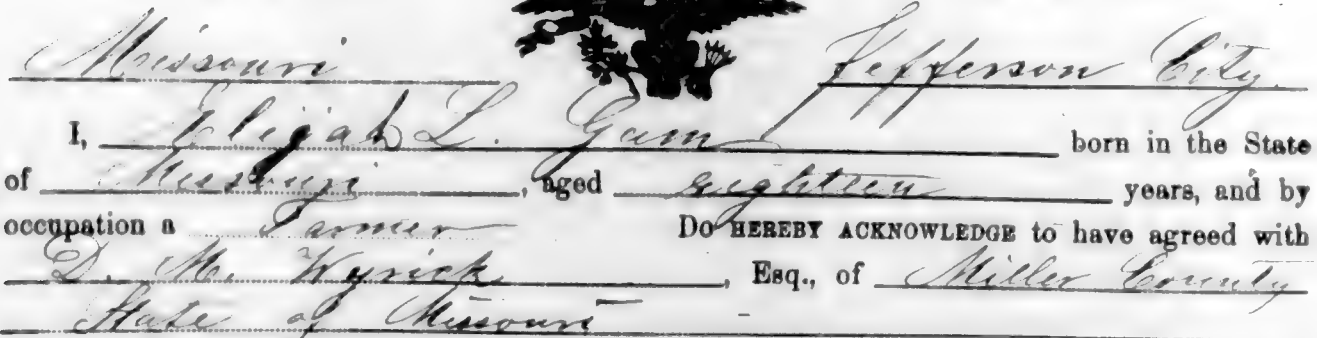 Missouri Jefferson City.
I, Elijah L. Gum born in the State
of Missouri, aged eighteen years, and by
occupation a Farmer Do HEREBY ACKNOWLEDGE to have agreed with
D. M. Wyrick, Esq., of Miller County
State of Missouri